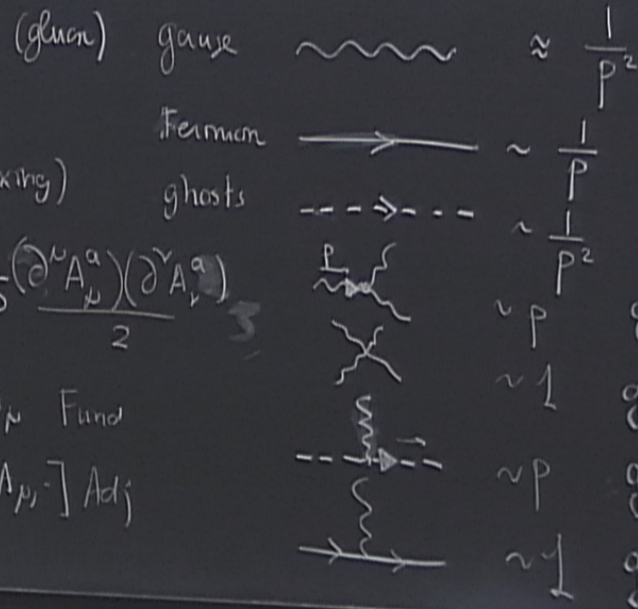 (gluon) gauge ≈ 1/P²
Fermion ~ 1/P
xing) ghosts ~ 1/P²
(∂^μ A_μ^a)(∂^ν A_ν^a) / 2
P ~ p
~ 1
μ Fund
A_μ, ·] Adj ~ p
~ 1